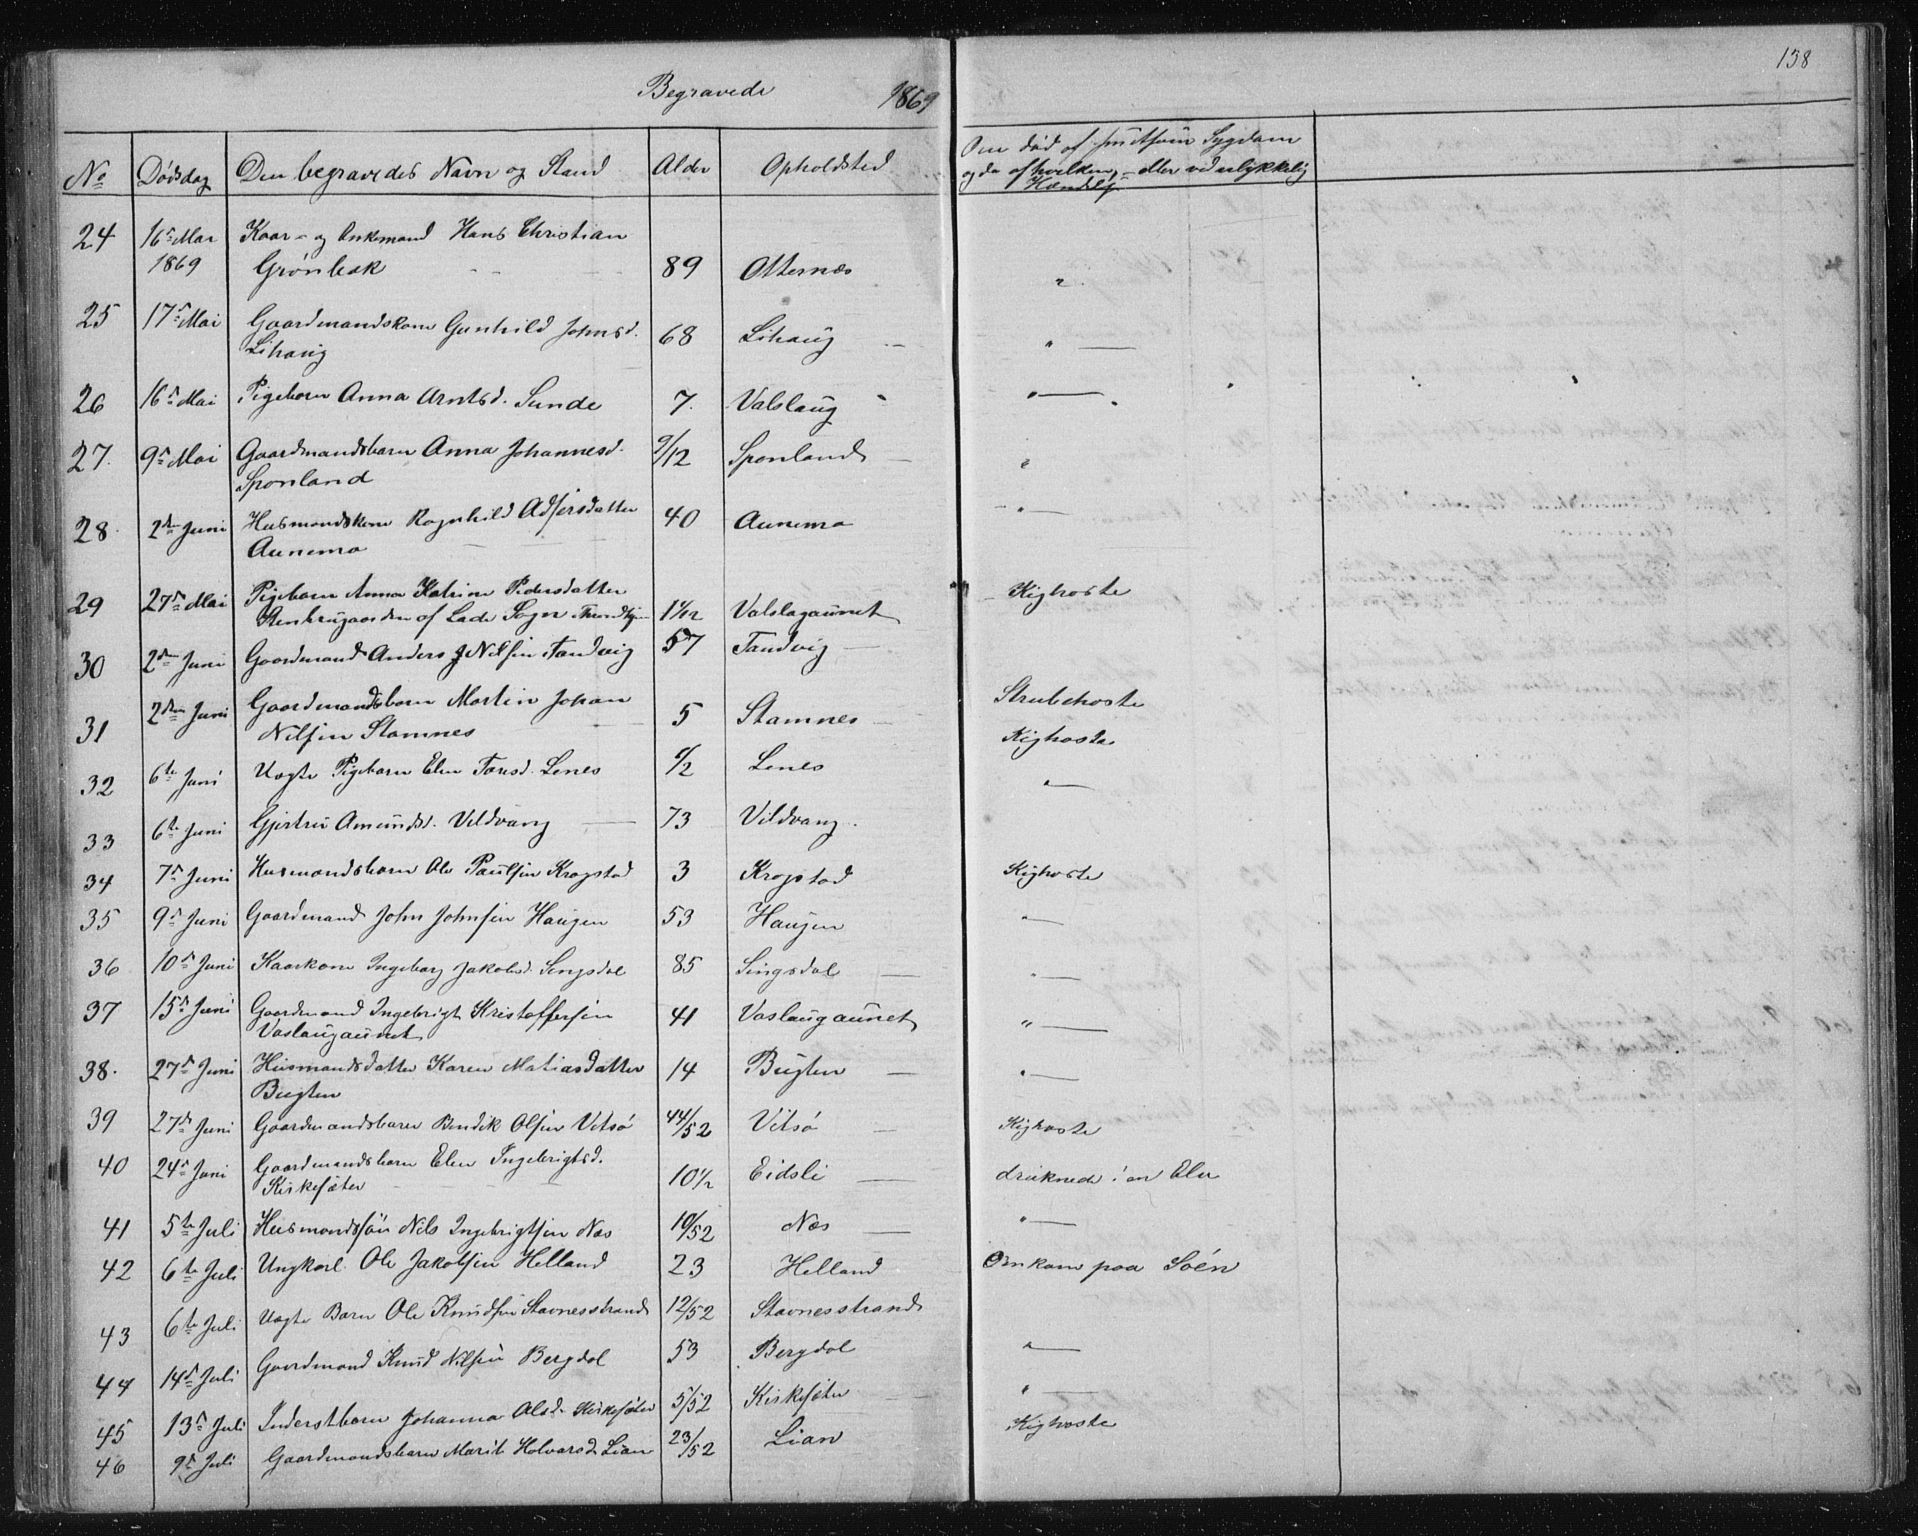 138
Begravede 1869
No Dødsdag Den begravedes Navn og Stand Alder Opholdsted Om død af smitsom Sygdom
og da af hvilken, eller ved ulykkelig
Hændelse
24 16de Mai Kaar- og Enkemand Hans Christian
1869 Grønbak 89 Otternæs "
25 17de Mai Gaardmandskone Gunhild Johnsd. 68 Lihaug "
Lihaug
26 16de Mai Pigebarn Anna Arntsd. Sunde 7. Valslaug "
27. 9de Mai Gaardmandsbarn Anna Johannesd. 9/12 Sponland "
Sponland
28. 2den Juni Husmandskone Ragnhild 40 Aunemo "
Aunemo
29 27de Mai Pigebarn Anna Katrine Pedersdatter Kighoste
af Lade Sogn Valslagaunet
30 2den Juni Gaardmand Anders J Nilsen Tandvig 57 Tandvig
31 2den Juni Gaardmandsbarn Martin Johan 5 Stamnes Strubehoste
Nilsen Stamnes Kighoste
32 6te Juni Uægte Pigebarn Elen Lenes Lenes "
33 6te Juni Gjertru Amundsd. Vildvang 73 Vildvang.
34 7de Juni Husmandsbarn Ole Paulsen Krogstad 3 Krogstad Kighoste
35 9de Juni Gaardmand John Johnsen Haugen 53 Haugen "
36 10de Juni Kaarkone Ingeborg Jakobsd. Singsdal 85 Singsdal "
37 15de Juni Gaardmand Ingebrigt Kristoffersen 41 Vaslaugaunet "
Vaslaugaunet
38. 27de Juni Husmandsdatter Karen Matiasdatter 14 Bugten "
Bugten
39 27de Juni Gaardmandsbarn Bendik Olsen Vitsø 44/52 Vitsø Kighoste
40 24de Juni Gaardmandsbarn Elen Ingebrigtsd. 10½ Eidsli druknede i en Elv
Kirkesæter
41 5te Juli Husmandssøn Nils Ingebrigtsen Næs 10/52 Næs "
42 6te Juli Ungkarl Ole Jakobsen Helland 23 Helland Omkom paa Søen
43 6te Juli Uægte Barn Ole Knudsen Stavnesstrand 12/52 Stavnesstrand
44 14de Juli Gaardmand Knud Nilsen Bergdal 53 Bergdal "
45 13de Juli Inderstbarn Johanna Olsd. Kirkesæter 5/52 Kirkesæter "
46 9de Juli Gaardmandsbarn Marit Holvarsd. Lian 23/52 Lian Kighoste